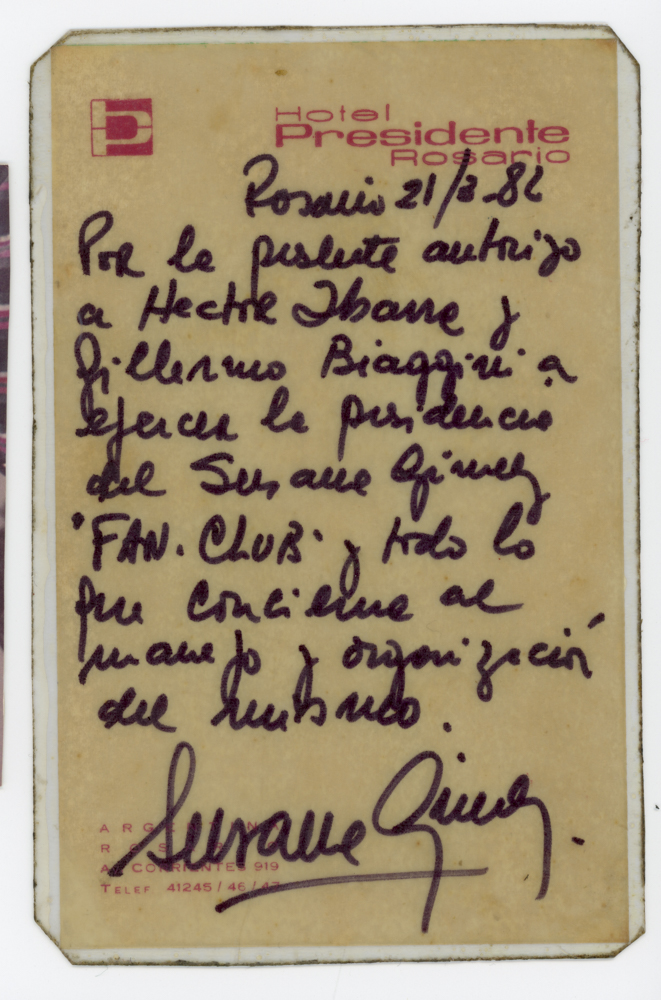 Hotel
Presidente
Rosario
Rosario 21/3-82
Por la presente autorizo
a Hector Ibarra y
Gillermo Biaggini a
ejercer la presidencia
del Susana Gimenez
"FAN. CLUB" y todo lo
que concierne al
manejo y organización
del mismo.
Susana Gimenez.
ARGENTINA
ROSARIO
AV. CORRIENTES 919
TELEF. 41245 / 46 / 47